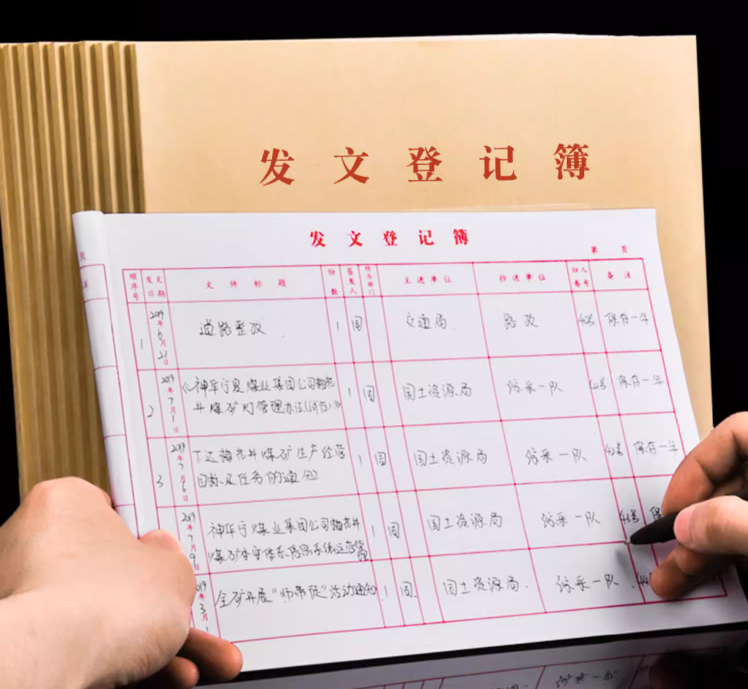 发文登记簿
发文登记簿
第 页
顺序号 发文日期 文件标题 份数 签发人 主送单位 抄送单位 归入卷号 备注
1 2019年6月21日 道路整改 1 周 交通局 路政 保存一年
2 2019年7月1日 《神华宁夏煤业集团公司梅花
井煤矿灯管理办法(试行)》 1 周 国土资源局 综采一队 保存一年
3 2019年7月6日 下达梅花井煤矿生产经营
目标及任务的通知 1 周 国土资源局 综采一队 保存一年
2019年7月9日 神华宁煤业集团公司梅花井
煤矿 1 周 国土资源局 综采一队
2019年3月 全矿开展"师带徒"活动通知 1 周 国土资源局 综采一队